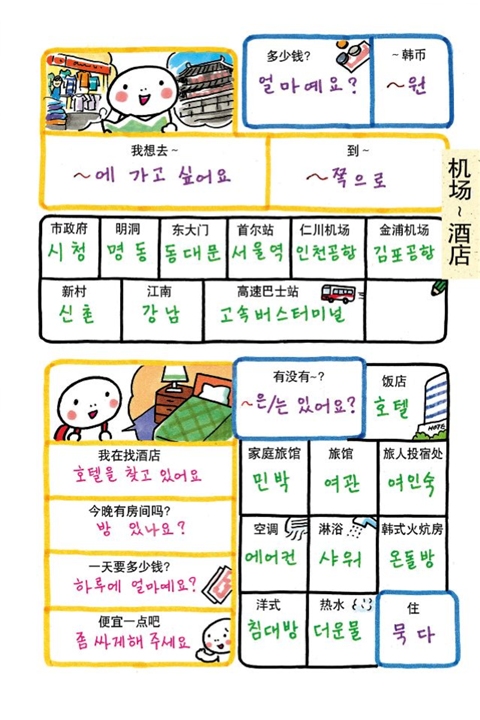 多少钱?
얼마예요?
~韩币
~원
我想去~
~에 가고 싶어요
到~
~쪽으로
机场~酒店
市政府
시청
明洞
명동
东大门
동대문
首尔站
서울역
仁川机场
인천공항
金浦机场
김포공항
新村
신촌
江南
강남
高速巴士站
고속버스터미널
有没有~?
~은/는 있어요?
饭店
호텔
HOTE
我在找酒店
호텔을 찾고 있어요
今晚有房间吗?
방 있나요?
一天要多少钱?
하루에 얼마예요?
便宜一点吧
좀 싸게해 주세요
家庭旅馆
민박
旅馆
여관
旅人投宿处
여인숙
空调
에어컨
淋浴
샤워
韩式火炕房
온돌방
洋式
침대방
热水
더운물
住
묵다